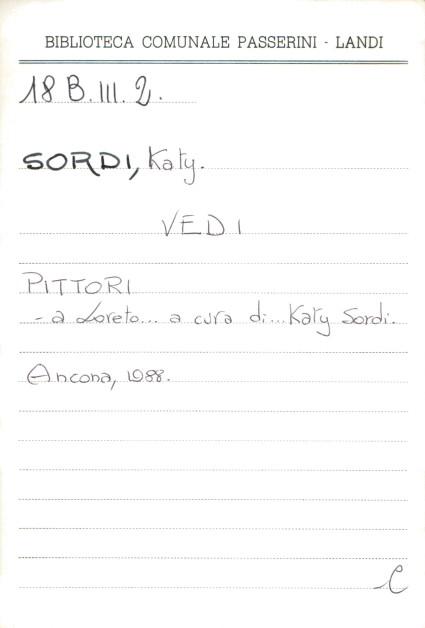 BIBLIOTECA COMUNALE PASSERINI - LANDI
18 B.III.2.
SORDI, Katy.
VEDI
PITTORI
- a Loreto... a cura di... Katy Sordi.
Ancona, 1988.
C